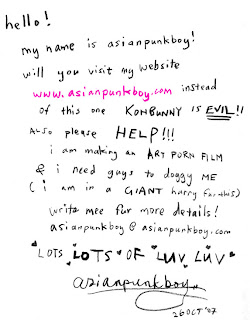 hello!
my name is asianpunkboy!
will you visit my website
www.asianpunkboy.com instead
of this one KONBUNNY is EVIL!!
ALSO please HELP!!!
i am making an ART PORN FILM
& i need guys to doggy ME
(i am in a GIANT hurry for this)
write mee fur more details!
asianpunkboy@asianpunkboy.com
LOTS LOTS OF LUV LUV
asianpunkboy
26 OCT '07